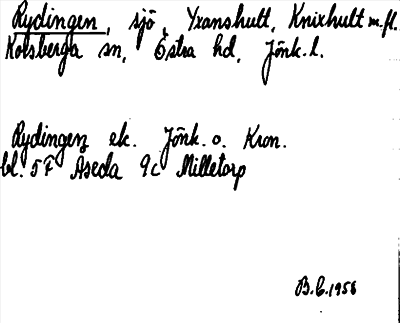 Rydingen, sjö, Yxanshult, Knixhult m.fl.
Korsberga sn, Östra hd, Jönk. l.
Rydingen ek. Jönk. o. Kron.
bl. 5F Åseda 9c Milletorp
B.C. 1956